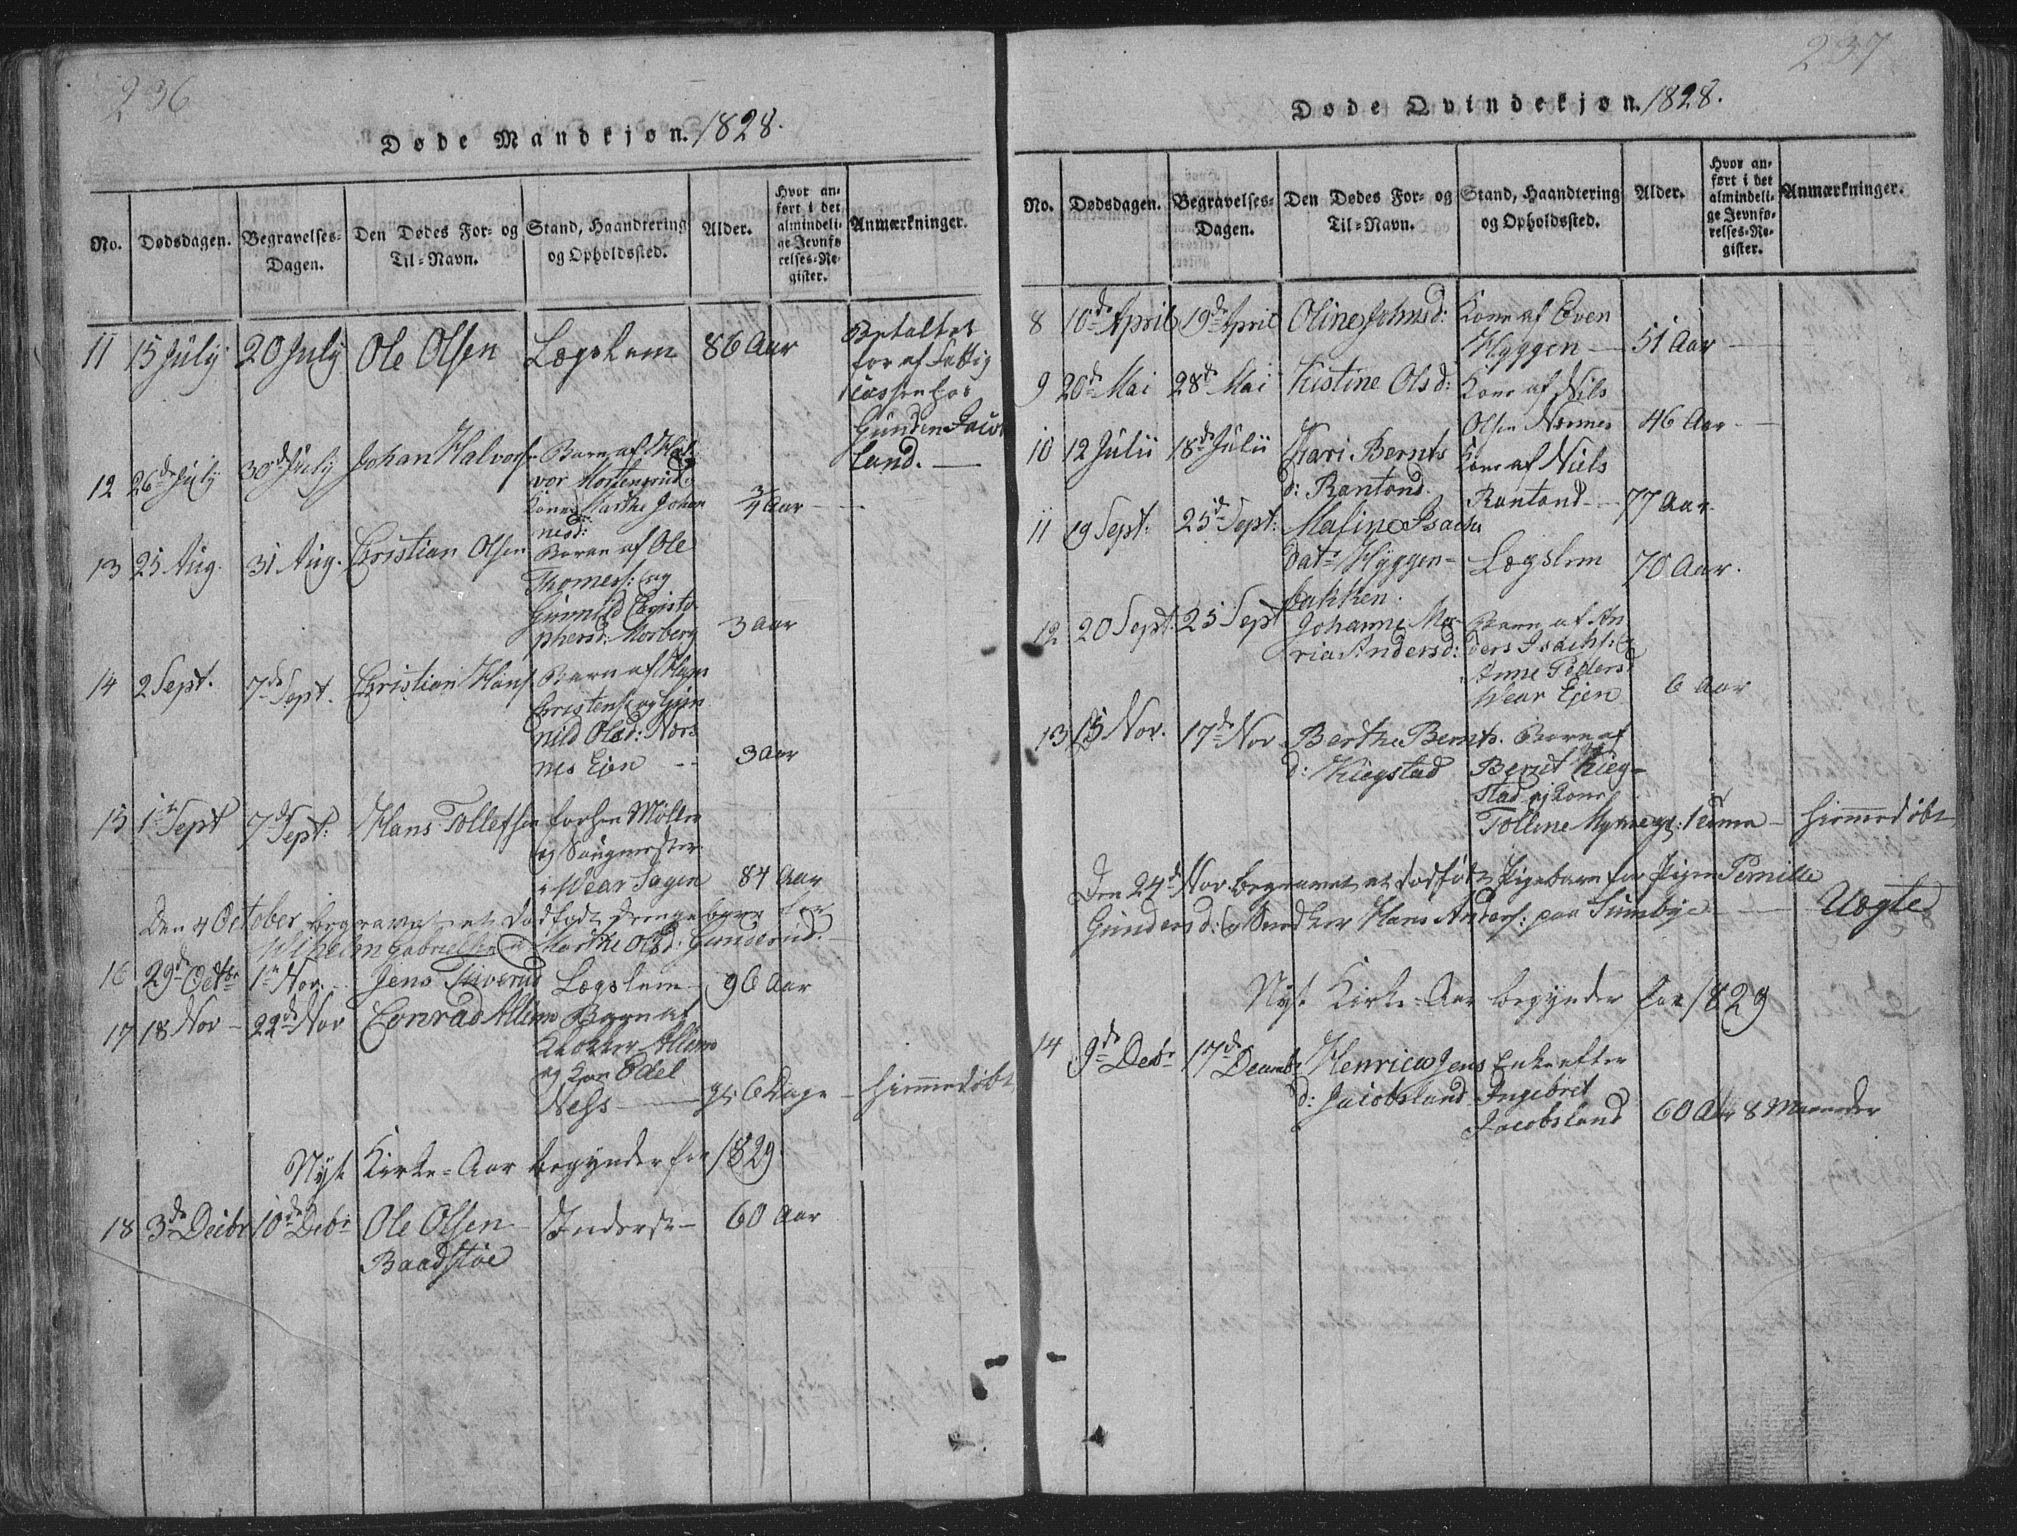 236
Døde Mandkjøn. 1828.
No. Dødsdagen. Begravelses-Dagen. Den Dødes For- og Til-Navn. Stand, Haandtering og Opholdssted. Alder. Hvor anført i det almindelige Jevnførelses-Register. Anmærkninger.
11 15 July 20 July Ole Olsen Lægslem 86 Aar Betaltes
for af Fattig
Cassen hos
Gunden Jacobs
land.
12 26de July 30de July Johan Halvors. Barn af Hal-
vor Mortensrud
Kone Marthe Johan
nesd: 3/4 Aar
13 25 Aug. 31 Aug. Christian Olsen Barn af Ole
Thomes: og
Gunnild Christo-
phersd: Morberg 3 Aar
14 2 Sept. 7de Sept. Christian Hans. Barn af Hans
Christens: og Gun
nild Olsd: Nærs
nes Ejen 3 Aar
15 1ste Sept 7de Sept: Hans Tollefsen forhen Møller
og Saugmester
i Wear Sagen 84 Aar
Den 4 October begravet et dødfødt Drengebarn for
Wilhelm Gabrielsen og Marthe Olsd: Gunderud.
16 29de Octbr 1ste Nov. Jens Tuverud Lægslem 96 Aar
17 18 Nov 22de Nov Conrad Allum Barn af
Klokker Allum
og Kone Edel
Ness 6 Dage hiemmedøbt
Nyt Kirke-Aar begynder for 1829
18 3de Decbr 10de Decbr Ole Olsen Inderst 60 Aar
Baadstøe
237
Døde Qvindekjøn. 1828.
No. Dødsdagen. Begravelses-Dagen. Den Dødes For- og Til-Navn. Stand, Haandtering og Opholdssted. Alder. Hvor anført i det almindelige Jevnførelses-Register. Anmærkninger.
8 10de April 19de April Oline Johnsd: Kone af Even
Hyggen 51 Aar
9 20de Mai 28de Mai Kistine Olsd: Kone af Nils
Olsen Nærnes 46 Aar
10 12 Julii 18de Julii Kari Bernts Kone af Niels
d: Rantond. Rantond 77 Aar
11 19 Sept. 25de Sept: Maline Isachs
dat: Hyggen- Lægslem 70 Aar.
bakken.
12 20 Sept. 25 Sept Johanne Ma- Barn af An
ria Andersd: ders Isachs: og
Anne Peders:
Wear Ejen 6 Aar
13 15 Nov. 17de Nov Berthe Bernts. Barn af
d: Kiegstad Bernt Kieg-
stad og Kone
Tolline hiemmedøbt
Den 24de Nov begravet et dødfødt Pigebarn for Pigen Pernille
Gundersd: og Hans Anders: paa Sundbye Uægte
Nyt Kirke-Aar begynder for 1829
14 9de Decbr 17de Decembr Henrica Jens Enke efter
d: Jacobsland Ingebret
Jacobsland 60 Aar 8 Maaneder